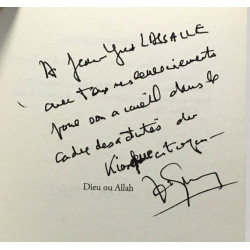 A Jean-Yves LASSALLE
avec tous mes remerciements
pour son accueil dans le
cadre des activités du
Kiosque citoyen
Dieu ou Allah